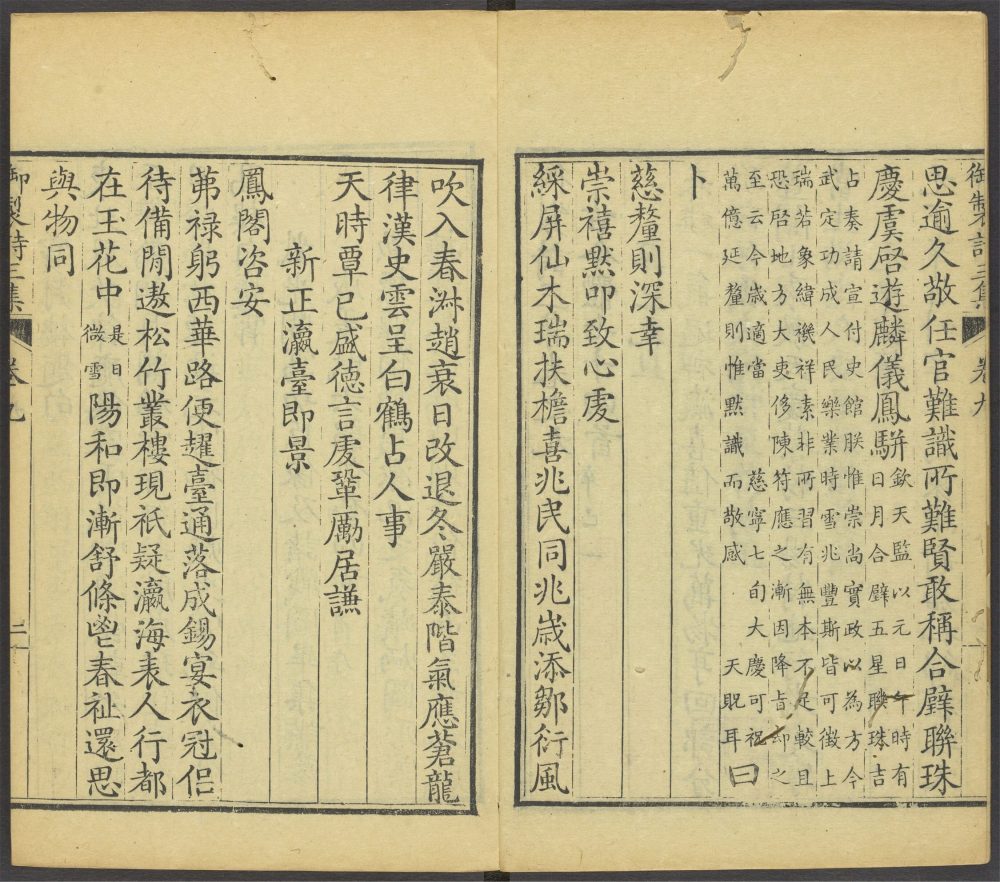 御製詩三集
卷九
思逾久敬任官難識所難賢敢稱合璧聯珠
慶虞啓遊麟儀鳳駢
欽天監以元日午時有
日月合璧五星聯珠吉
占奏請宣付史館朕惟崇尚實政以為方今
武定功成人民樂業時雪兆豐斯皆可徵上
瑞若象緯禨祥素非所習有無本不足較且
恐啓地方大吏侈陳符應之漸因降旨却之
至云今歲適當 慈寧七旬大慶可祝
萬億延釐則惟默識而敬感 天貺耳
曰
卜
慈釐則深幸
崇禧默叩致心虔
綵屏仙木瑞扶檐喜兆民同兆歲添鄒衍風
吹入春湖趙衰日改退冬嚴泰階氣應蒼龍
律漢史雲呈白鶴占人事
天時覃已盛德言虔鞏勵居謙
新正瀛臺即景
鳳閣咨安
茀禄躬西華路便趯臺通落成錫宴衣冠侣
待備閒遨松竹叢樓現祇疑瀛海表人行都
在玉花中
是日
微雪
陽和即漸舒條鬯春祉還思
與物同
御製詩三集
卷九
二